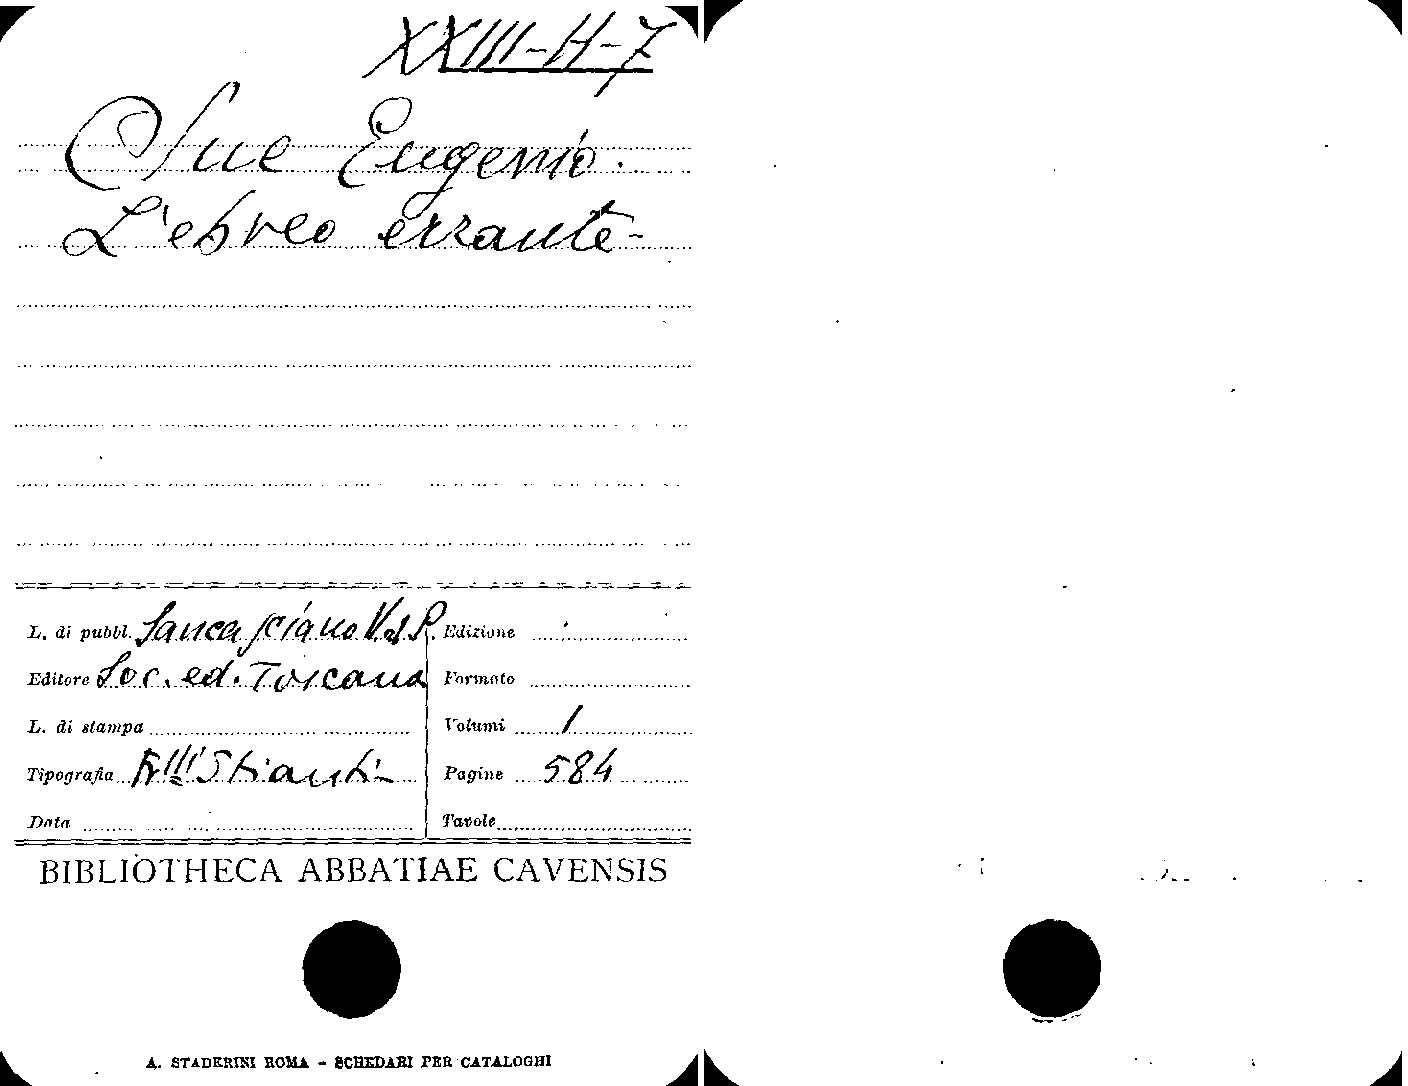 XXIII-H-7
Sue Eugenio.
L'ebreo errante-
L. di pubbl. Sancasciano V.d.P.
Editore Soc. ed. Toscana
L. di stampa
Tipografia F.lli Stianti
Data
Edizione
Formato
Volumi 1
Pagine 584
Tavole
BIBLIOTHECA ABBATIAE CAVENSIS
A. STADERINI ROMA - SCHEDARI PER CATALOGHI